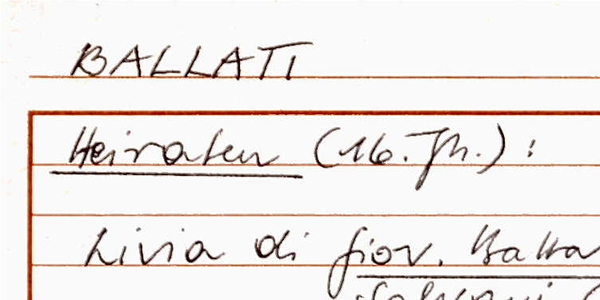 BALLATI
Heiraten (16. Jh.):
Livia di Giov. Batta